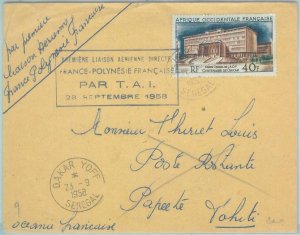 par première
liaison aérienne
France Polynésie Française
PREMIÈRE LIAISON AÉRIENNE DIRECTE
FRANCE-POLYNÉSIE FRANÇAISE
PAR T.A.I.
28 SEPTEMBRE 1958
AFRIQUE OCCIDENTALE FRANÇAISE
CENTENAIRE DE DAKAR
RF
40F
SENEGAL
DAKAR YOFF
23-9
1958
SENEGAL
Monsieur Thuret Louis
Poste Restante
Papeete Tahiti
Océanie française